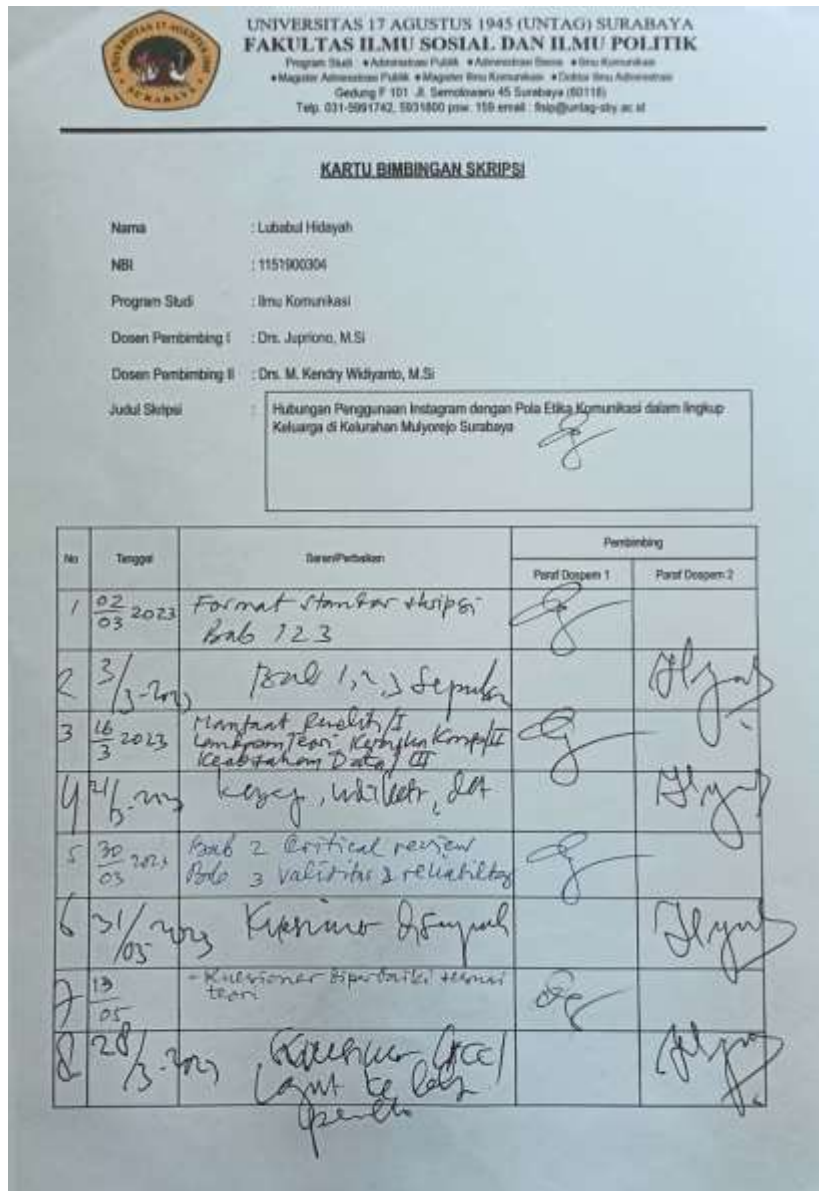 UNIVERSITAS 17 AGUSTUS 1945 (UNTAG) SURABAYA
FAKULTAS ILMU SOSIAL DAN ILMU POLITIK
Program Studi • Administrasi Publik • Administrasi Bisnis • Ilmu Komunikasi
• Magister Administrasi Publik • Magister Ilmu Komunikasi • Doktor Ilmu Administrasi
Gedung F 101 Jl. Semolowaru 45 Surabaya (60118)
Telp. 031-5991742, 5931800 psw. 159 email : fisip@untag-sby.ac.id
SURABAYA
KARTU BIMBINGAN SKRIPSI
Nama : Lubabul Hidayah
NBI : 1151900304
Program Studi : Ilmu Komunikasi
Dosen Pembimbing I : Drs. Jupriono, M.Si
Dosen Pembimbing II : Drs. M. Kendry Widiyanto, M.Si
Judul Skripsi : Hubungan Penggunaan Instagram dengan Pola Etika Komunikasi dalam lingkup
Keluarga di Kelurahan Mulyorejo Surabaya
No Tanggal Saran/Perbaikan Pembimbing
Paraf Dospem 1 Paraf Dospem 2
1 02/03 2023 Format standar skripsi
Bab 1 2 3
2 3/3-2023 Bab 1, 2, 3
3 16/3 2023 Manfaat Penelit/I
Teori
Keabsahan Data / III
4
5 30/03 2023 Bab 2 Critical review
Bab 3 validitas & reliabilitas
6 31/03 2023
7 13/05 - Kuesioner diperbaiki sesuai
teori
8 28/3-2023 acc/